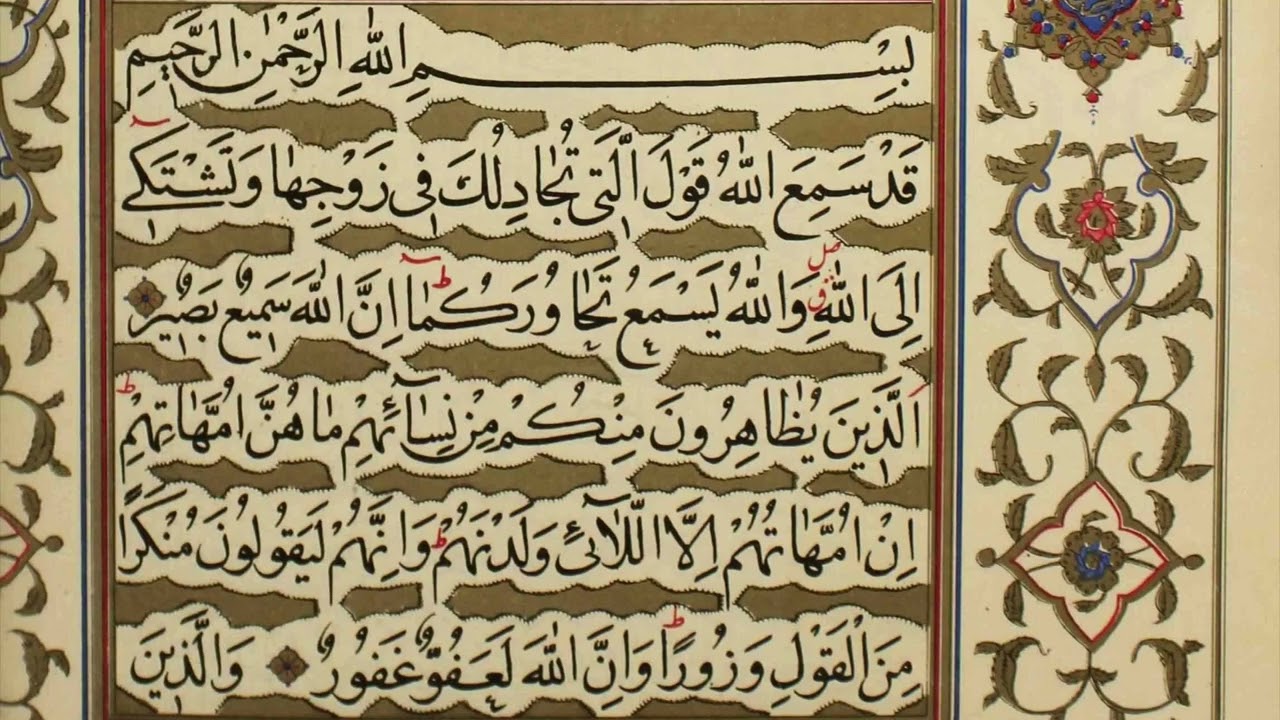 بِسْمِ اللّٰهِ الرَّحْمٰنِ الرَّحٖيمِ
قَدْ سَمِعَ اللّٰهُ قَوْلَ الَّتٖى تُجَادِلُكَ فٖى زَوْجِهَا وَتَشْتَكٖٓى
اِلَى اللّٰهِ ۗ وَاللّٰهُ يَسْمَعُ تَحَاوُرَكُمَا ۜ اِنَّ اللّٰهَ سَمٖيعٌ بَصٖيرٌ
اَلَّذٖينَ يُظَاهِرُونَ مِنْكُمْ مِنْ نِسَٓائِهِمْ مَا هُنَّ اُمَّهَاتِهِمْ ط
اِنْ اُمَّهَاتُهُمْ اِلَّا اللَّٓائٖى وَلَدْنَهُمْ ط وَاِنَّهُمْ لَيَقُولُونَ مُنْكَرًا
مِنَ الْقَوْلِ وَزُورًا ط وَاِنَّ اللّٰهَ لَعَفُوٌّ غَفُورٌ وَالَّذٖينَ